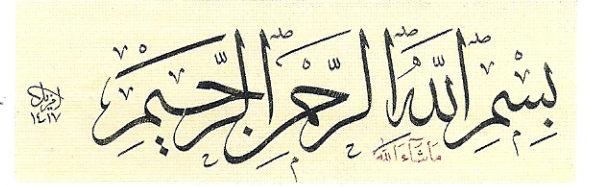 بِسْمِ اللَّهِ الرَّحْمٰنِ الرَّحِيمِ
مَا شَاءَ اللَّهُ
١٤١٧